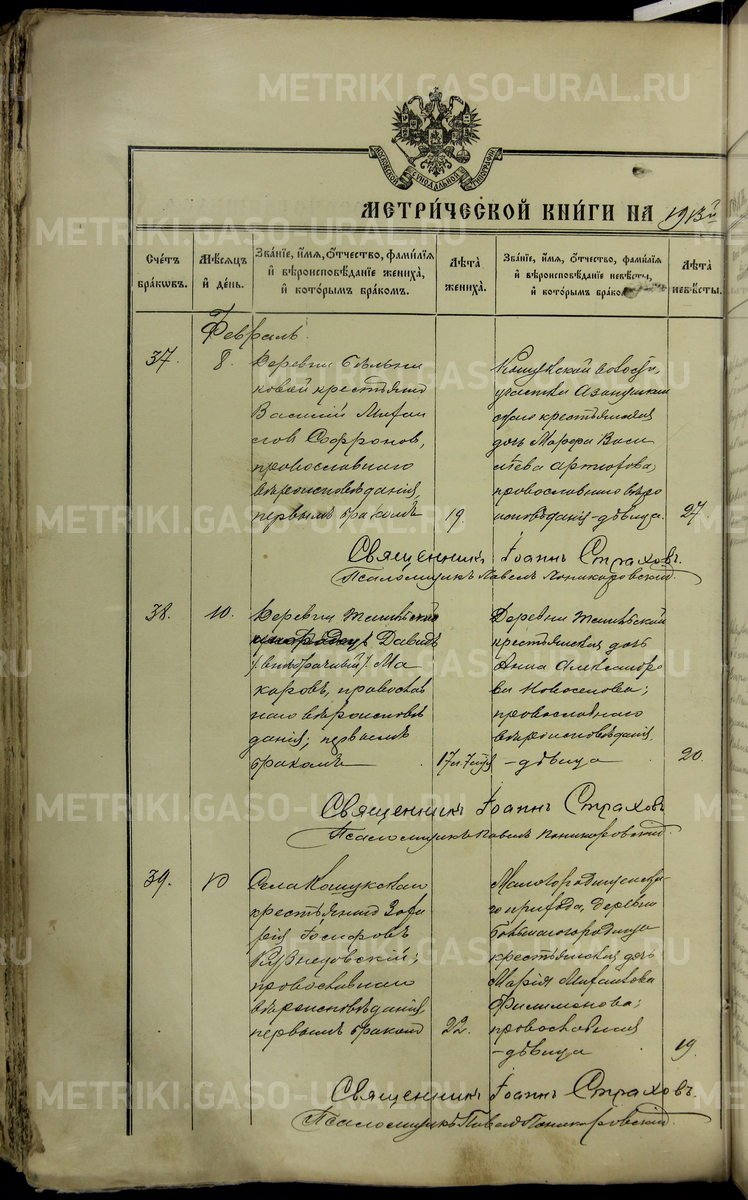 METRIKI.GASO-URAL.RU
МОСКОВСКОЙ СѴНОДАЛЬНОЙ ТИПОГРАФІИ
МЕТРИ́ЧЕСКОЙ КНИ́ГИ НА 1913й
Сче́тъ бра́ковъ.
Мѣ́сяцъ и҆ де́нь.
Зва́нїе, и҆́мя, ѻ҆́тчество, фами́лїя и҆ вѣроисповѣ́данїе жениха̀, и҆ кото́рымъ бра́комъ.
Лѣ́та жениха̀.
Зва́нїе, и҆́мя, ѻ҆́тчество, фами́лїя и҆ вѣроисповѣ́данїе невѣ́сты, и҆ кото́рымъ брако
Лѣ́та невѣ́сты.
Февраль.
37.
8.
Деревни Бѣльни
ковой крестьянинъ
Василій Михаи
ловъ Софроновъ,
православнаго
вѣроисповѣданія,
первымъ бракомъ
19.
Кошукской волости,
участка
скаго крестьянская
дочь Марфа Васи
льева
православнаго вѣро
исповѣданія - дѣвица.
27
Священникъ Іоаннъ Страховъ.
Псаломщикъ Павелъ Поникоровский.
38.
10.
Деревни
инородецъ Давидъ
/внѣбрачный/ Ма
каровъ, православ
наго вѣроисповѣ
данія, первымъ
бракомъ
Деревни
крестьянская дочь
Анна Александро
ва Новоселова;
православнаго
вѣроисповѣданія
- дѣвица
20.
Священникъ Іоаннъ Страховъ
Псаломщикъ Павелъ Поникоровский.
39.
10
Села Кошукскаго
крестьянинъ Заха
рія Іосифовъ
Кузнецовскій;
православнаго
вѣроисповѣданія,
первымъ бракомъ
22.
прихода, деревни
крестьянская дочь
Марія Михайлова
Филимонова;
православная
- дѣвица
19.
Священникъ Іоаннъ Страховъ.
Псаломщикъ Павелъ Поникоровский.